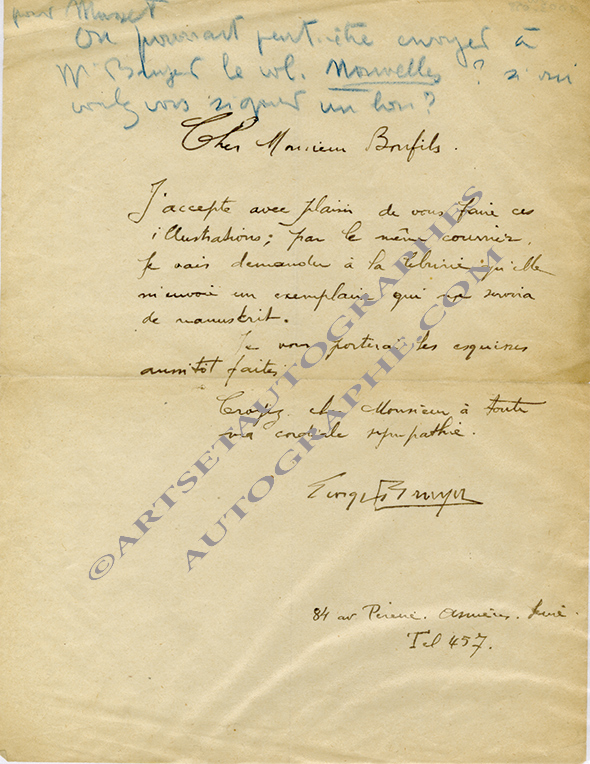 pour Musset
On pourrait peut-être envoyer à
Mr Bruyer le vol. Nouvelles ? si oui
voulez vous signer un bon ?
Cher Monsieur Bonfils.
J'accepte avec plaisir de vous faire ces
illustrations; par le même courrier,
je vais demander à la librairie qu'elle
m'envoie un exemplaire qui me servira
de manuscrit.
Je vous porterai les esquisses
aussitôt faites.
Croyez, cher Monsieur à toute
ma cordiale sympathie.
Georges Bruyer
84 av Péreire. Asnières. Seine.
Tel 457.
©ARTSETAUTOGRAPHES
AUTOGRAPHE.COM